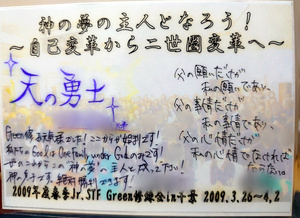 神の夢の主人となろう!
~自己変革から二世圏変革へ~
天の勇士
父の願いだけが
私の願いであり、
父の事情だけが
私の事情であり、
父の心情だけが
私の心情でなければ
ならない。
Green修
ここからが
God is One family under God
2009年度春季Jr.STF Green修練会in千葉 2009.3.26~4.2